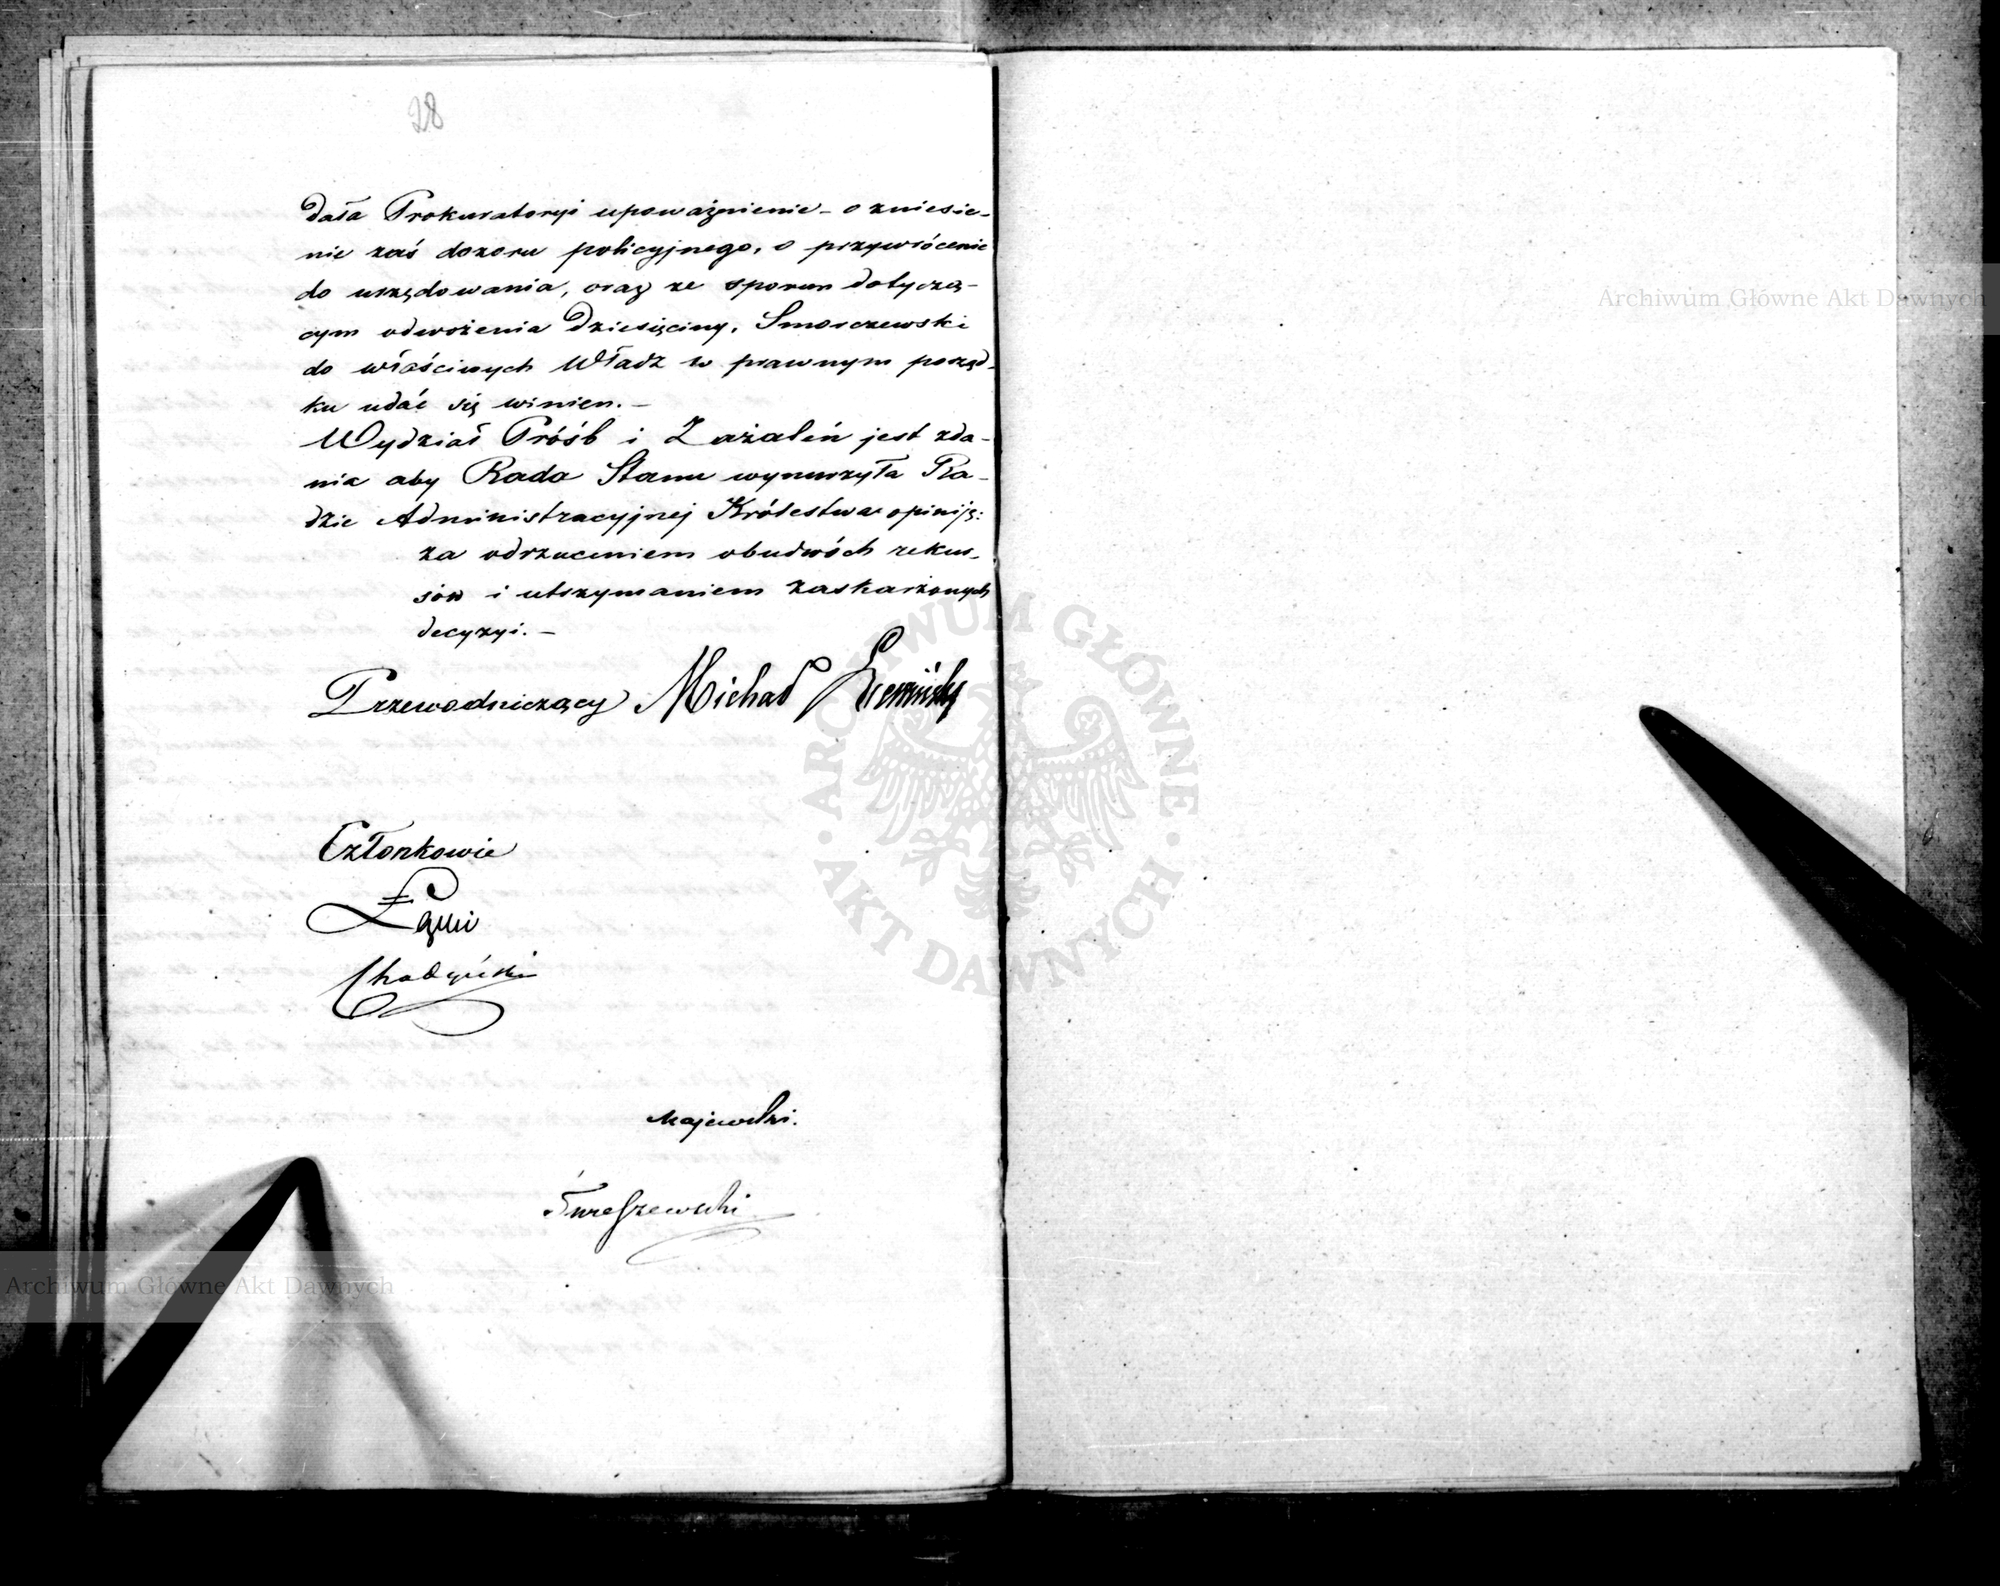 28
dała Prokuratoryi upoważnienie – o zniesie-
nie zaś dozoru policyjnego, o przywrócenie
do urzędowania, oraz ze sporem dotyczą-
cym odwożenia Dziesięciny, Smorczewski
do właściwych Władz w prawnym porząd-
ku udać się winien. –
Wydział Próśb i Zażaleń jest zda-
nia aby Rada Stanu wynurzyła Ra-
dzie Administracyjnej Królestwa opiniję:
za odrzuceniem obudwóch rekur-
sów i utrzymaniem zaskarżonych
decyzyi. –
Przewodniczący Michał
Członkowie
Chodyński
Majewski.
Archiwum Główne Akt Dawnych
Archiwum Główne Akt Dawnych
ARCHIWUM GŁÓWNE · AKT DAWNYCH ·